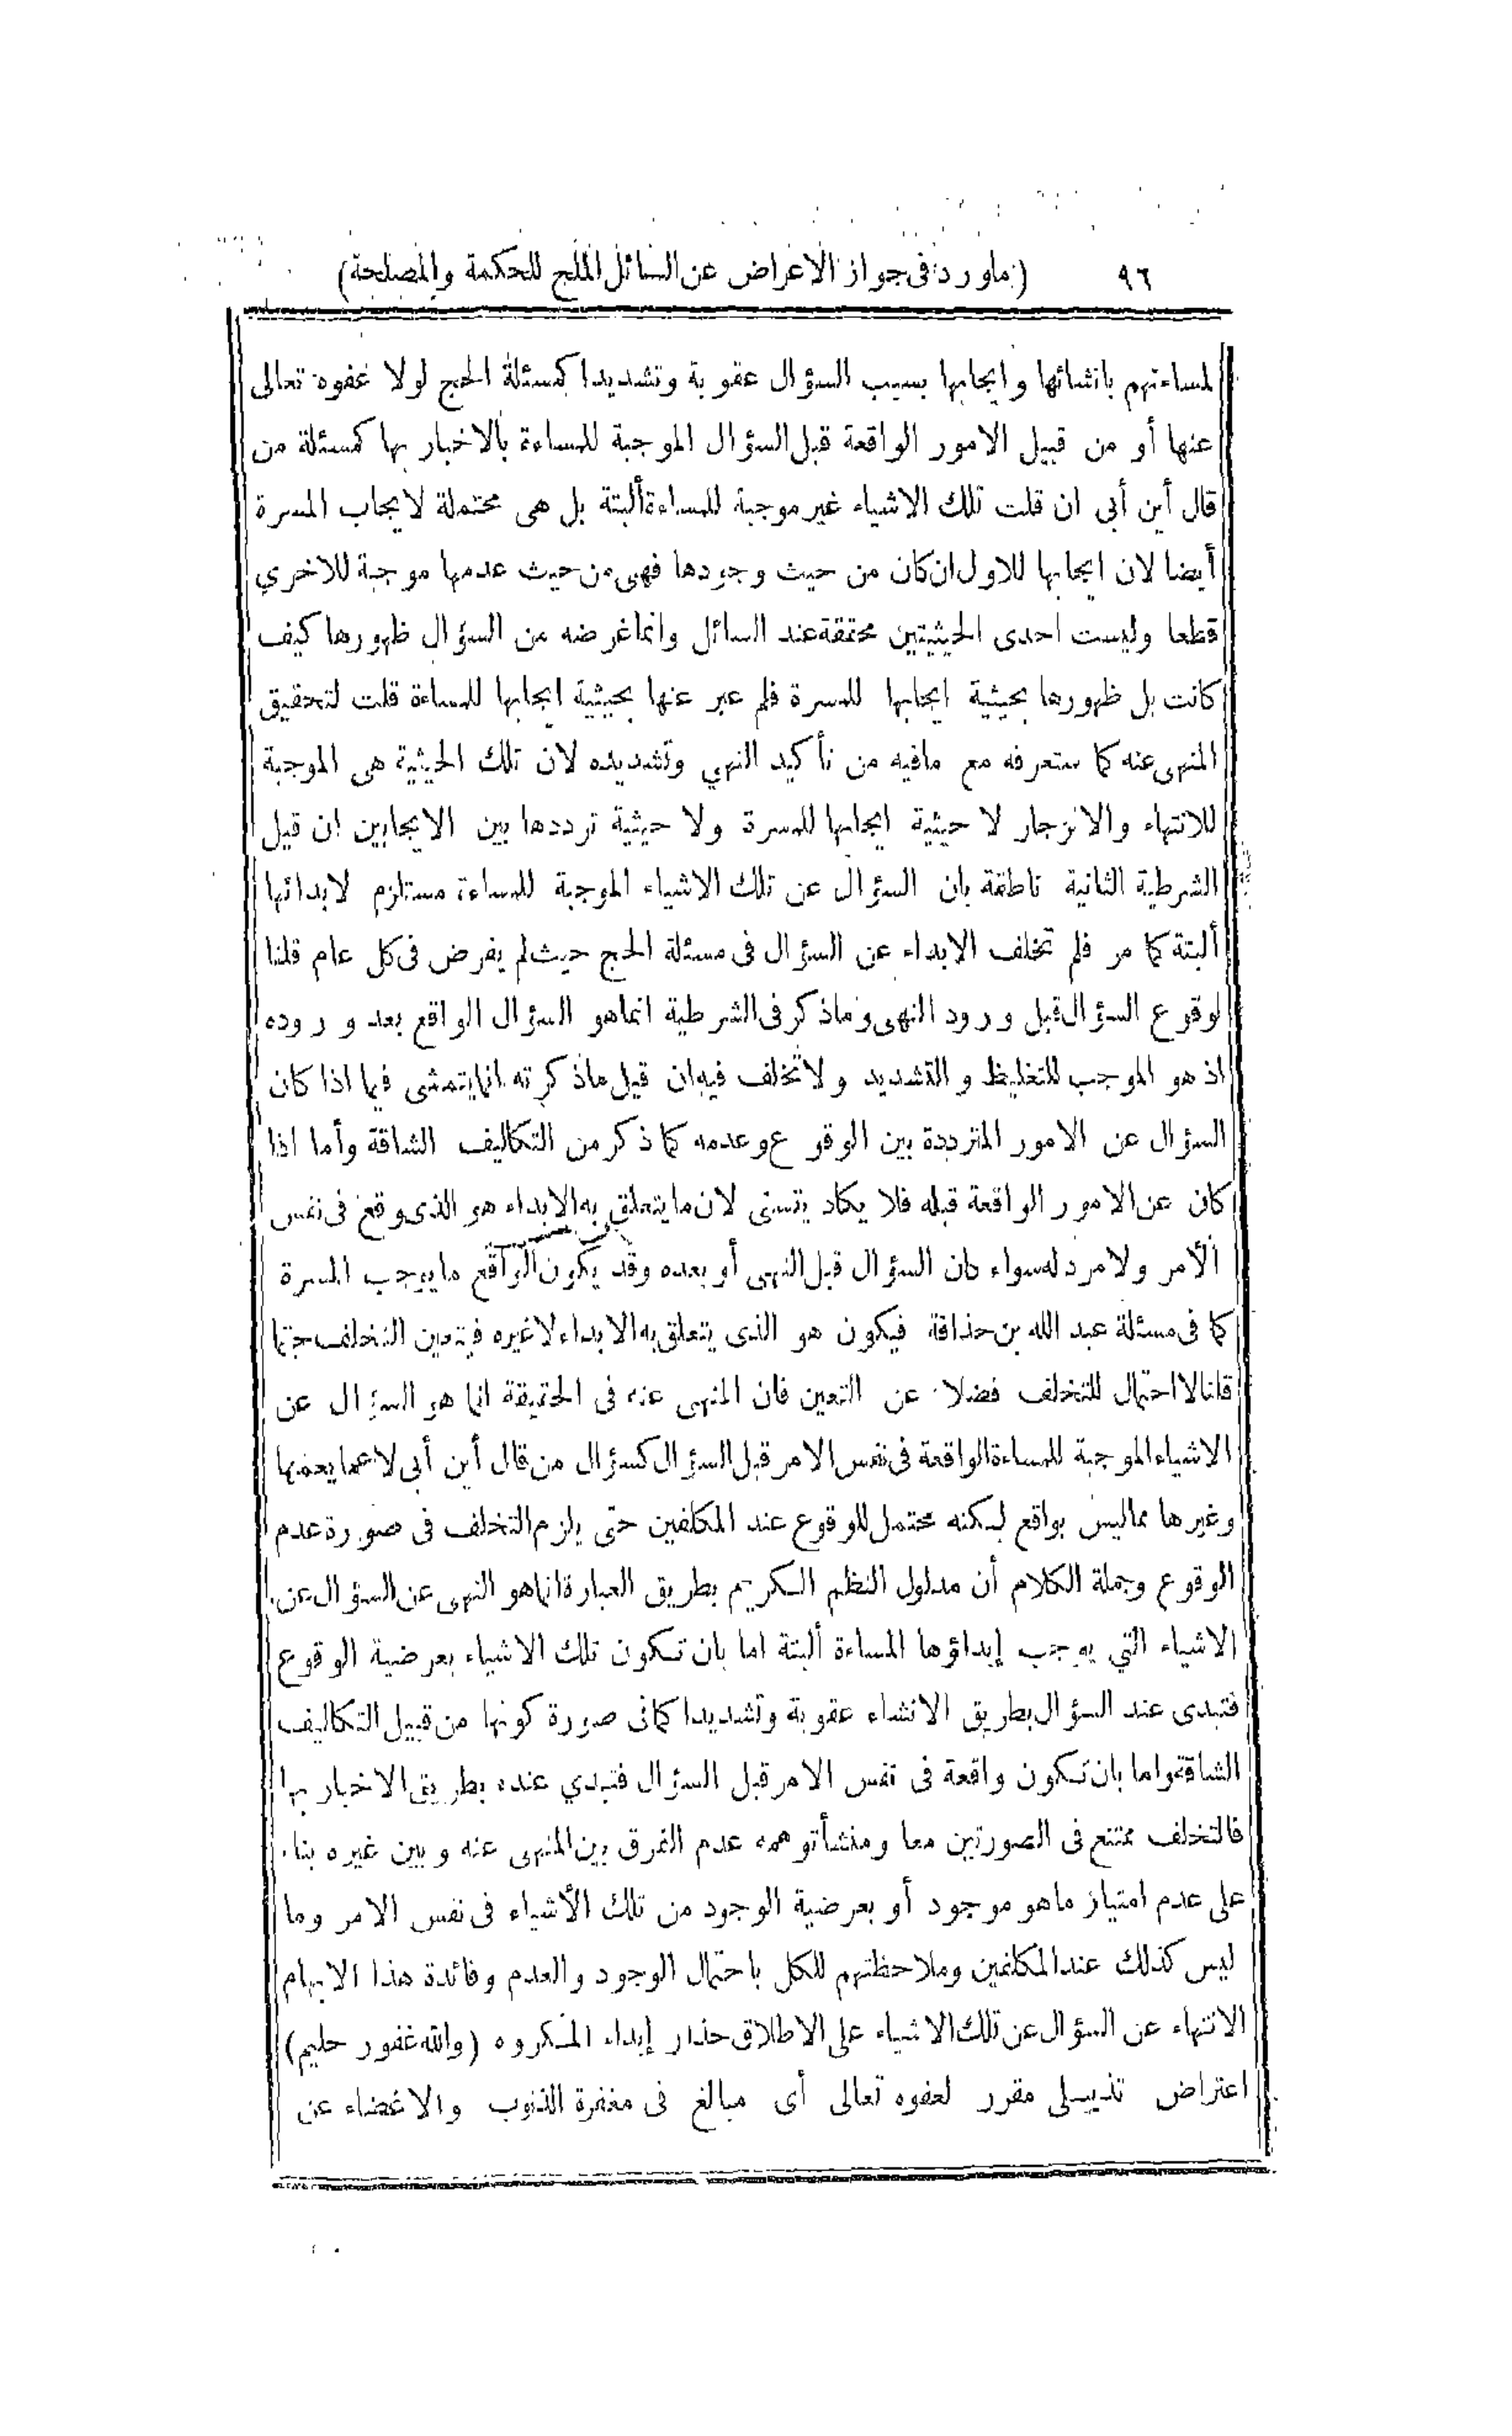 ٩٦ (ماورد فى جواز الاعراض عن السائل الملح للحكمة والمصلحة)
لمساءتهم بانشائها وايجابها بسبب السؤال عقوبة وتشديدا كمسئلة الحج لولا عفوه تعالى
عنها أو من قبيل الامور الواقعة قبل السؤال الموجبة للمساءة بالاخبار بها كمسئلة من
قال أين أبى ان قلت تلك الاشياء غير موجبة للمساءة ألبتة بل هى محتملة لايجاب المسرة
أيضا لان ايجابها للاول ان كان من حيث وجودها فهى من حيث عدمها موجبة للاخرى
قطعا وليست احدى الحيثيتين محققة عند السائل وانما غرضه من السؤال ظهورها كيف
كانت بل ظهورها بحيثية ايجابها للمسرة فلم عبر عنها بحيثية ايجابها للمساءة قلت لتحقيق
المنهى عنه كما ستعرفه مع مافيه من تأكيد النهي وتشديده لان تلك الحيثية هى الموجبة
للانتهاء والانزجار لا حيثية ايجابها للمسرة ولا حيثية ترددها بين الايجابين ان قيل
الشرطية الثانية ناطقة بان السؤال عن تلك الاشياء الموجبة للمساءة مستلزم لابدائها
ألبتة كما مر فلم تخلف الابداء عن السؤال فى مسئلة الحج حيث لم يفرض فى كل عام قلنا
لوقوع السؤال قبل ورود النهى وماذكر فى الشرطية انما هو السؤال الواقع بعد وروده
اذ هو الموجب للتغليظ والتشديد ولا تخلف فيه ان قيل ماذكرته انما يتمشى فيما اذا كان
السؤال عن الامور المترددة بين الوقوع وعدمه كما ذكر من التكاليف الشاقة وأما اذا
كان عن الامور الواقعة قبله فلا يكاد يتسنى لان ما يتعلق به الابداء هو الذى وقع فى نفس
الأمر ولا مرد له سواء كان السؤال قبل النهى أو بعده وقد يكون الواقع ما يوجب المسرة
كما فى مسئلة عبد الله بن حذافة فيكون هو الذى يتعلق به الابداء لا غيره فيتعين التخلف حتما
قلنا لا احتمال للتخلف فضلا عن التعين فان المنهى عنه فى الحقيقة انما هو السؤال عن
الاشياء الموجبة للمساءة الواقعة فى نفس الامر قبل السؤال كسؤال من قال أين أبى لا عما يعمها
وغيرها مماليس بواقع لكنه محتمل للوقوع عند المكلفين حتى يلزم التخلف فى صورة عدم
الوقوع وجملة الكلام أن مدلول النظم الكريم بطريق العبارة انما هو النهى عن السؤال عن
الاشياء التي يوجب إبداؤها المساءة ألبتة اما بان تكون تلك الاشياء بعرضية الوقوع
فتبدى عند السؤال بطريق الانشاء عقوبة وتشديدا كما فى صورة كونها من قبيل التكاليف
الشاقة واما بان تكون واقعة فى نفس الامر قبل السؤال فتبدي عنده بطريق الاخبار بها
فالتخلف ممتنع فى الصورتين معا ومنشأ توهمه عدم الفرق بين المنهى عنه وبين غيره بناء
على عدم امتياز ماهو موجود أو بعرضية الوجود من تلك الأشياء فى نفس الامر وما
ليس كذلك عند المكلفين وملاحظتهم للكل باحتمال الوجود والعدم وفائدة هذا الابهام
الانتهاء عن السؤال عن تلك الاشياء على الاطلاق حذار إبداء المكروه (والله غفور حليم)
اعتراض تذييلى مقرر لعفوه تعالى أى مبالغ فى مغفرة الذنوب والاغضاء عن